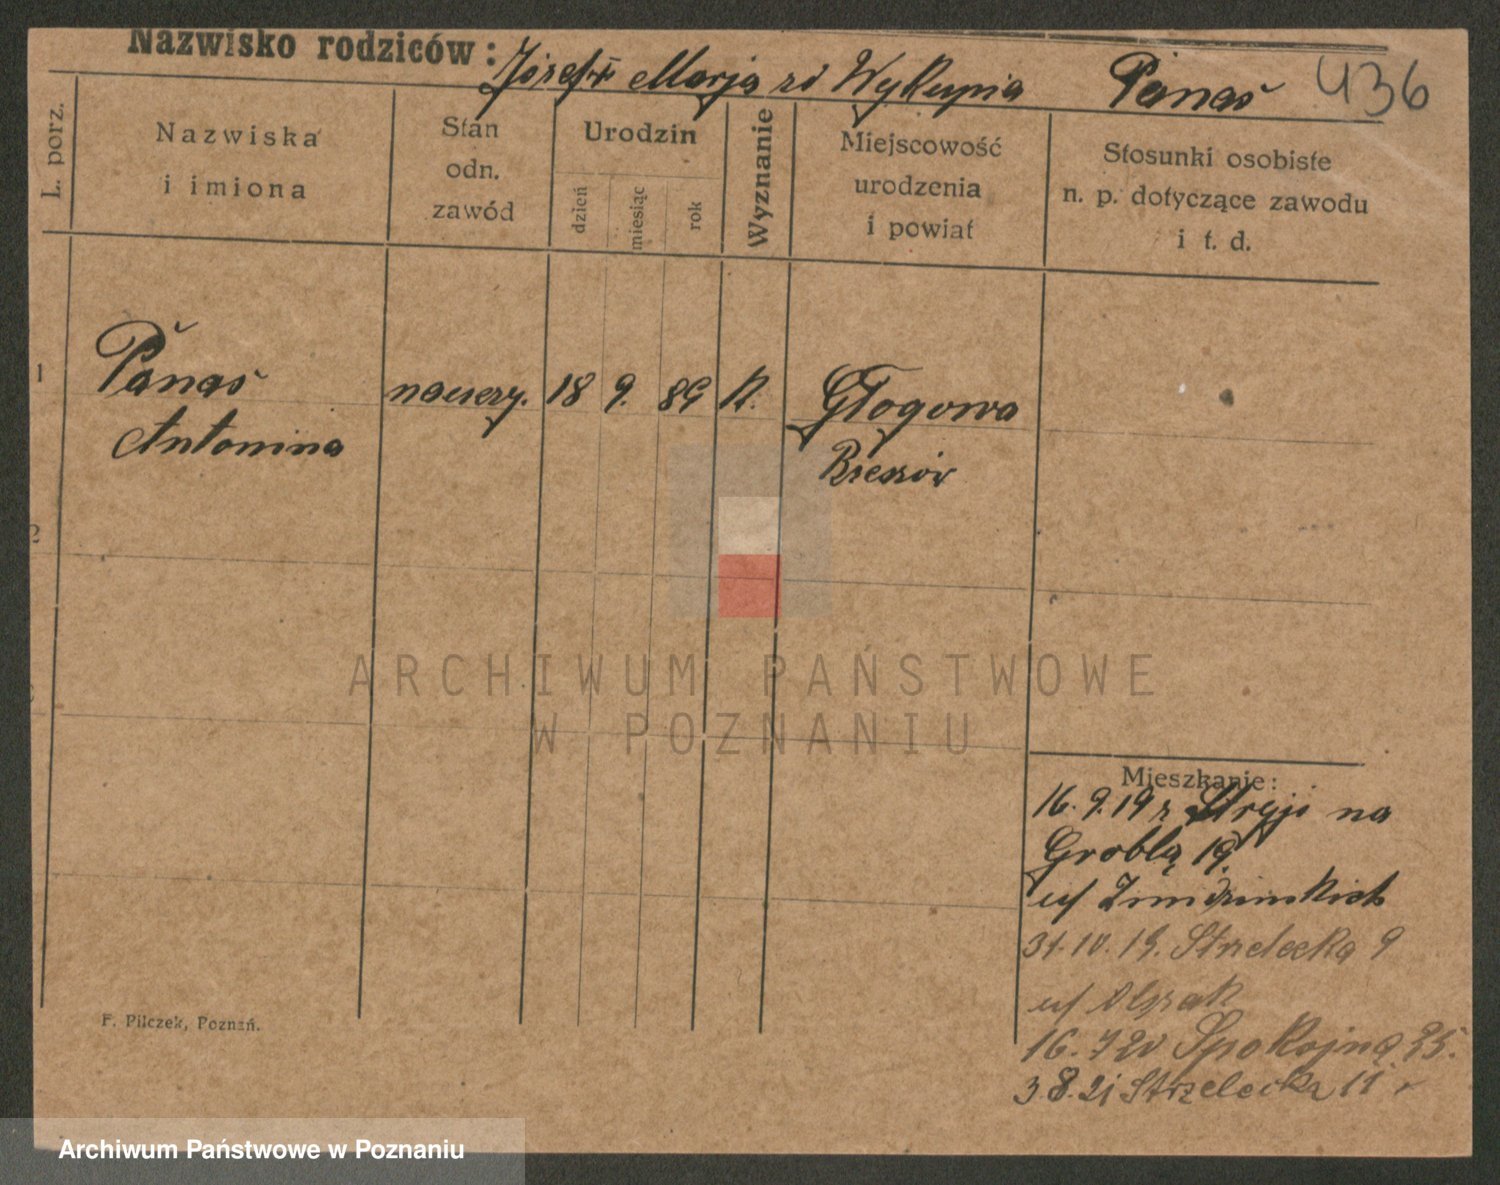 Nazwisko rodziców: Józef Marja zd Wykupia Panaś 436
L. porz.
Nazwiska i imiona
Stan odn. zawód
Urodzin
dzień
miesiąc
rok
Wyznanie
Miejscowość urodzenia i powiat
Stosunki osobiste n. p. dotyczące zawodu i t. d.
1 Panaś nauczy. 18 9. 89 K. Głogowa
Antonina Rzeszów
2
Mieszkanie:
16.9.19 r Stryj na
Groblą 19.
u/
31.10.19. Strzelecka 9
u/
16.7 20 Spokojna 25.
3.8.21 Strzelecka 11
F. Pilczek, Poznań.
ARCHIWUM PAŃSTWOWE
W POZNANIU
Archiwum Państwowe w Poznaniu